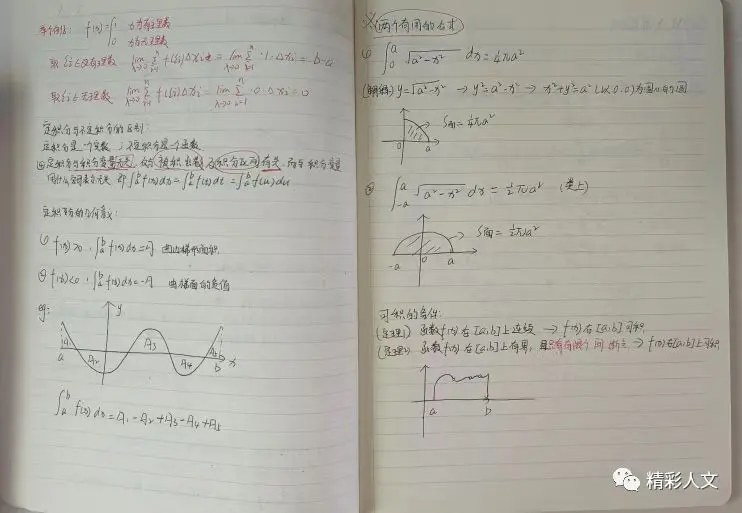 举个例: f(x)={1 x为有理数
0 x为无理数
取ξi∈有理数 lim λ→0 Σ i=1 n f(ξi)Δxi = lim λ→0 Σ i=1 n ·1·Δxi = b-a
取ξi∈无理数 lim λ→0 Σ i=1 n f(ξi)Δxi = lim λ→0 Σ i=1 n ·0·Δxi = 0
定积分与不定积分的区别:
定积分是一个实数, 不定积分是一个函数
定积分与积分变量无关, 仅与被积函数及积分区间有关, 而与积分变量
用什么字母表示无关 即∫a b f(x)dx=∫a b f(t)dt=∫a b f(u)du
定积分的几何意义:
(1) f(x)>0, ∫a b f(x)dx=A 曲边梯形面积
f(x)<0, ∫a b f(x)dx=-A 曲梯面的负值
eg:
y
A1 A2 A3 A4 A5
a b x
∫a b f(x)dx=A1-A2+A3-A4+A5
※(两个常用的公式)
(1) ∫0 a √a²-x² dx=¼πa²
(解释) y=√a²-x² → y²=a²-x² → x²+y²=a² 以(0,0)为圆心的圆
S面=¼πa²
0 a
② ∫-a a √a²-x² dx=½πa² (类上)
S面=½πa²
-a 0 a
可积的条件:
(定理1) 函数f(x)在[a,b]上连续 → f(x)在[a,b]可积
(定理2) 函数f(x)在[a,b]上有界, 且只有有限个间断点 → f(x)在[a,b]上可积
a b
精彩人文